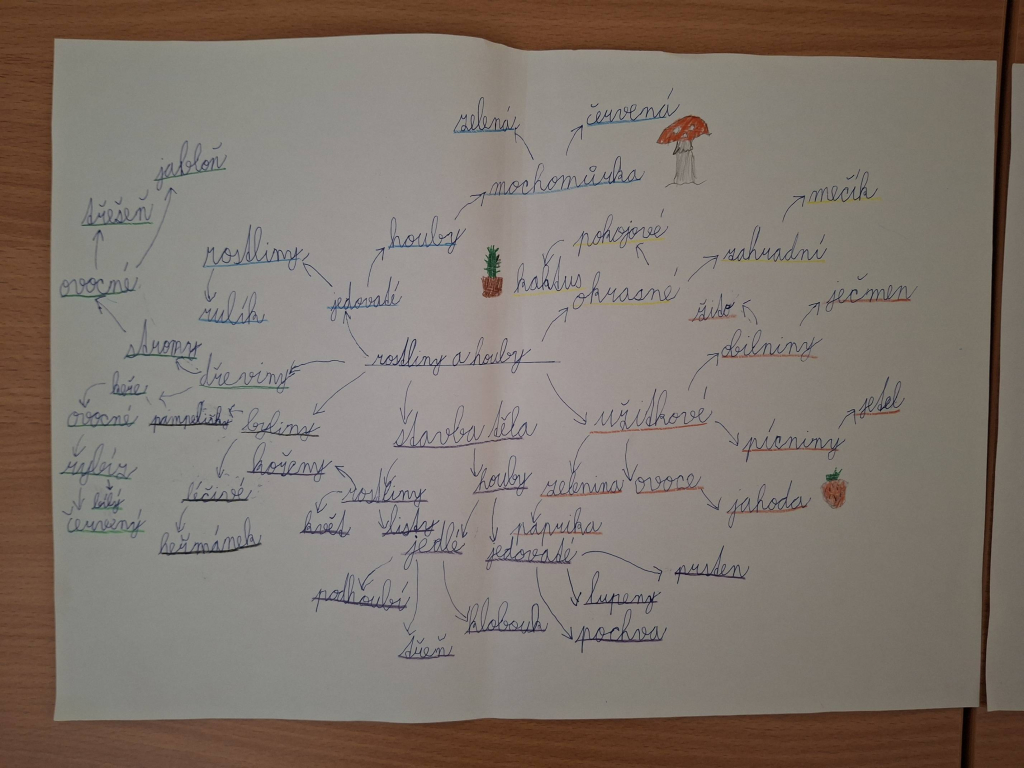 zelená
červená
jabloň
mochomůrka
mečík
třešeň
houby
pokojové
rostliny
zahradní
ovocné
kaktus
okrasné
jedovaté
ječmen
žito
rulík
stromy
rostliny a houby
obilniny
dřeviny
keře
jetel
ovocné
pampelišky
byliny
stavba těla
užitkové
pícniny
rybíz
kořeny
houby
zelenina
ovoce
bílý
léčivé
rostliny
jahoda
červený
květ
listy
paprika
heřmánek
jedlé
jedovaté
prsten
podhoubí
lupeny
klobouk
pochva
třeň